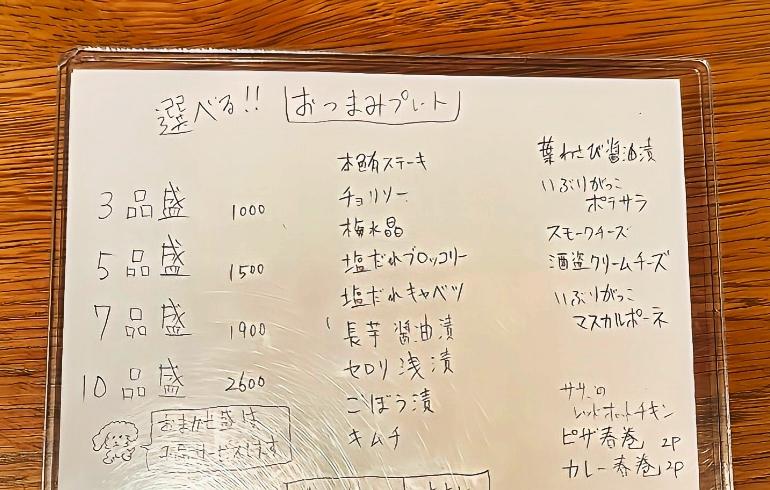 選べる!! おつまみプレート
3品盛 1000
5品盛 1500
7品盛 1900
10品盛 2600
おまかせ盛は
サービスです
本鮪ステーキ
チョリソー
梅水晶
塩だれブロッコリー
塩だれキャベツ
長芋醤油漬
セロリ浅漬
ごぼう漬
キムチ
葉わさび醤油漬
いぶりがっこ
ポテサラ
スモークチーズ
酒盗クリームチーズ
いぶりがっこ
マスカルポーネ
レッドホットチキン
ピザ春巻 2P
カレー春巻 2P